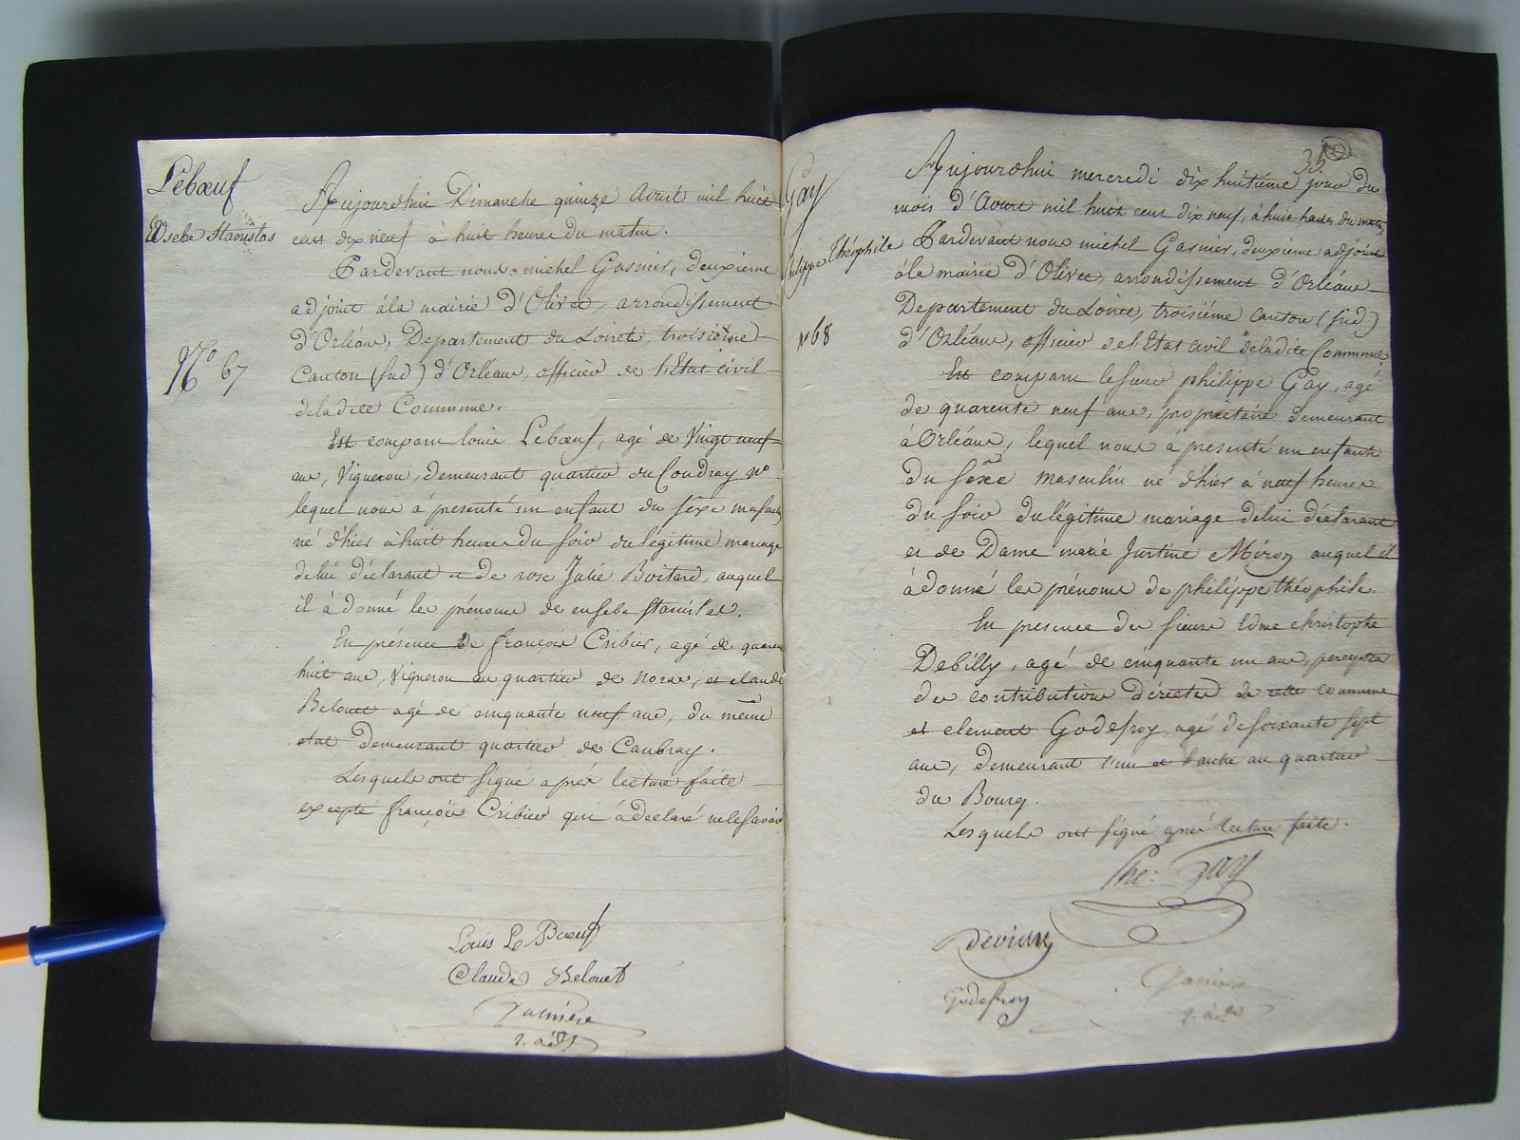 Lebœuf
Usebe Stanislas
N° 67
Aujourdhui Dimanche quinze Aout mil huit
cent dix neuf à huit heures du matin.
Pardevant nous michel Gasnier, deuxieme
adjoint à la mairie d'Olivet, arrondissement
d'Orléans, Departement du Loiret, troisième
Canton (sud) d'Orléans, officier de l'Etat civil
deladite Commune.
Est comparu louis Lebœuf, agé de Vingt neuf
ans, Vigneron, demeurant quartier du Coudray
lequel nous à presenté un enfant du séxe
né d'hier à huit heures du soir du légitime mariage
delui déclarant et De rose Julie Boitard, auquel
il à donné les prénoms de eusebe stanislas.
En présence De françois Cribier, agé de
huit ans, Vigneron au quartier de et claude
Belouet agé de cinquante neuf ans, du même
etat demeurant quartier de Caubray.
Lesquels ont signé après lecture faite
excepté françois Cribier qui à declaré nelesavoir
Louis Le Bœuf
Claude Belouet
Gasnière
2. adj
35
Gay
philippe théophile
N° 68
Aujourdhui mercredi dix huitième jour du
mois d'Aout mil huit cent dix neuf, à huit heures du matin
Pardevant nous michel Gasnier, deuxieme adjoint
à la mairie d'Olivet, arrondissement d'Orléans
Departement du Loiret, troisième canton (sud)
d'Orléans, officier de l'Etat civil deladite Commune
Est comparu le sieur philippe Gay, agé
de quarente neuf ans, proprietaire demeurant
à Orléans, lequel nous à presenté un enfant
du séxe masculin né d'hier à neuf heures
du soir du légitime mariage delui déclarant
et de Dame marie Justine Miron auquel il
à donné les prénoms de philippe théophile.
En presence des sieurs Edme christophe
Debilly, agé de cinquante un ans,
des contributions directes de cette commune
et clement Godefroy agé desoixante sept
ans, demeurant l'un et l'autre au quartier
du Bourg.
Lesquels ont signé après lecture faite.
Phe: Gay
Godefroy
Gasnière
2. adj